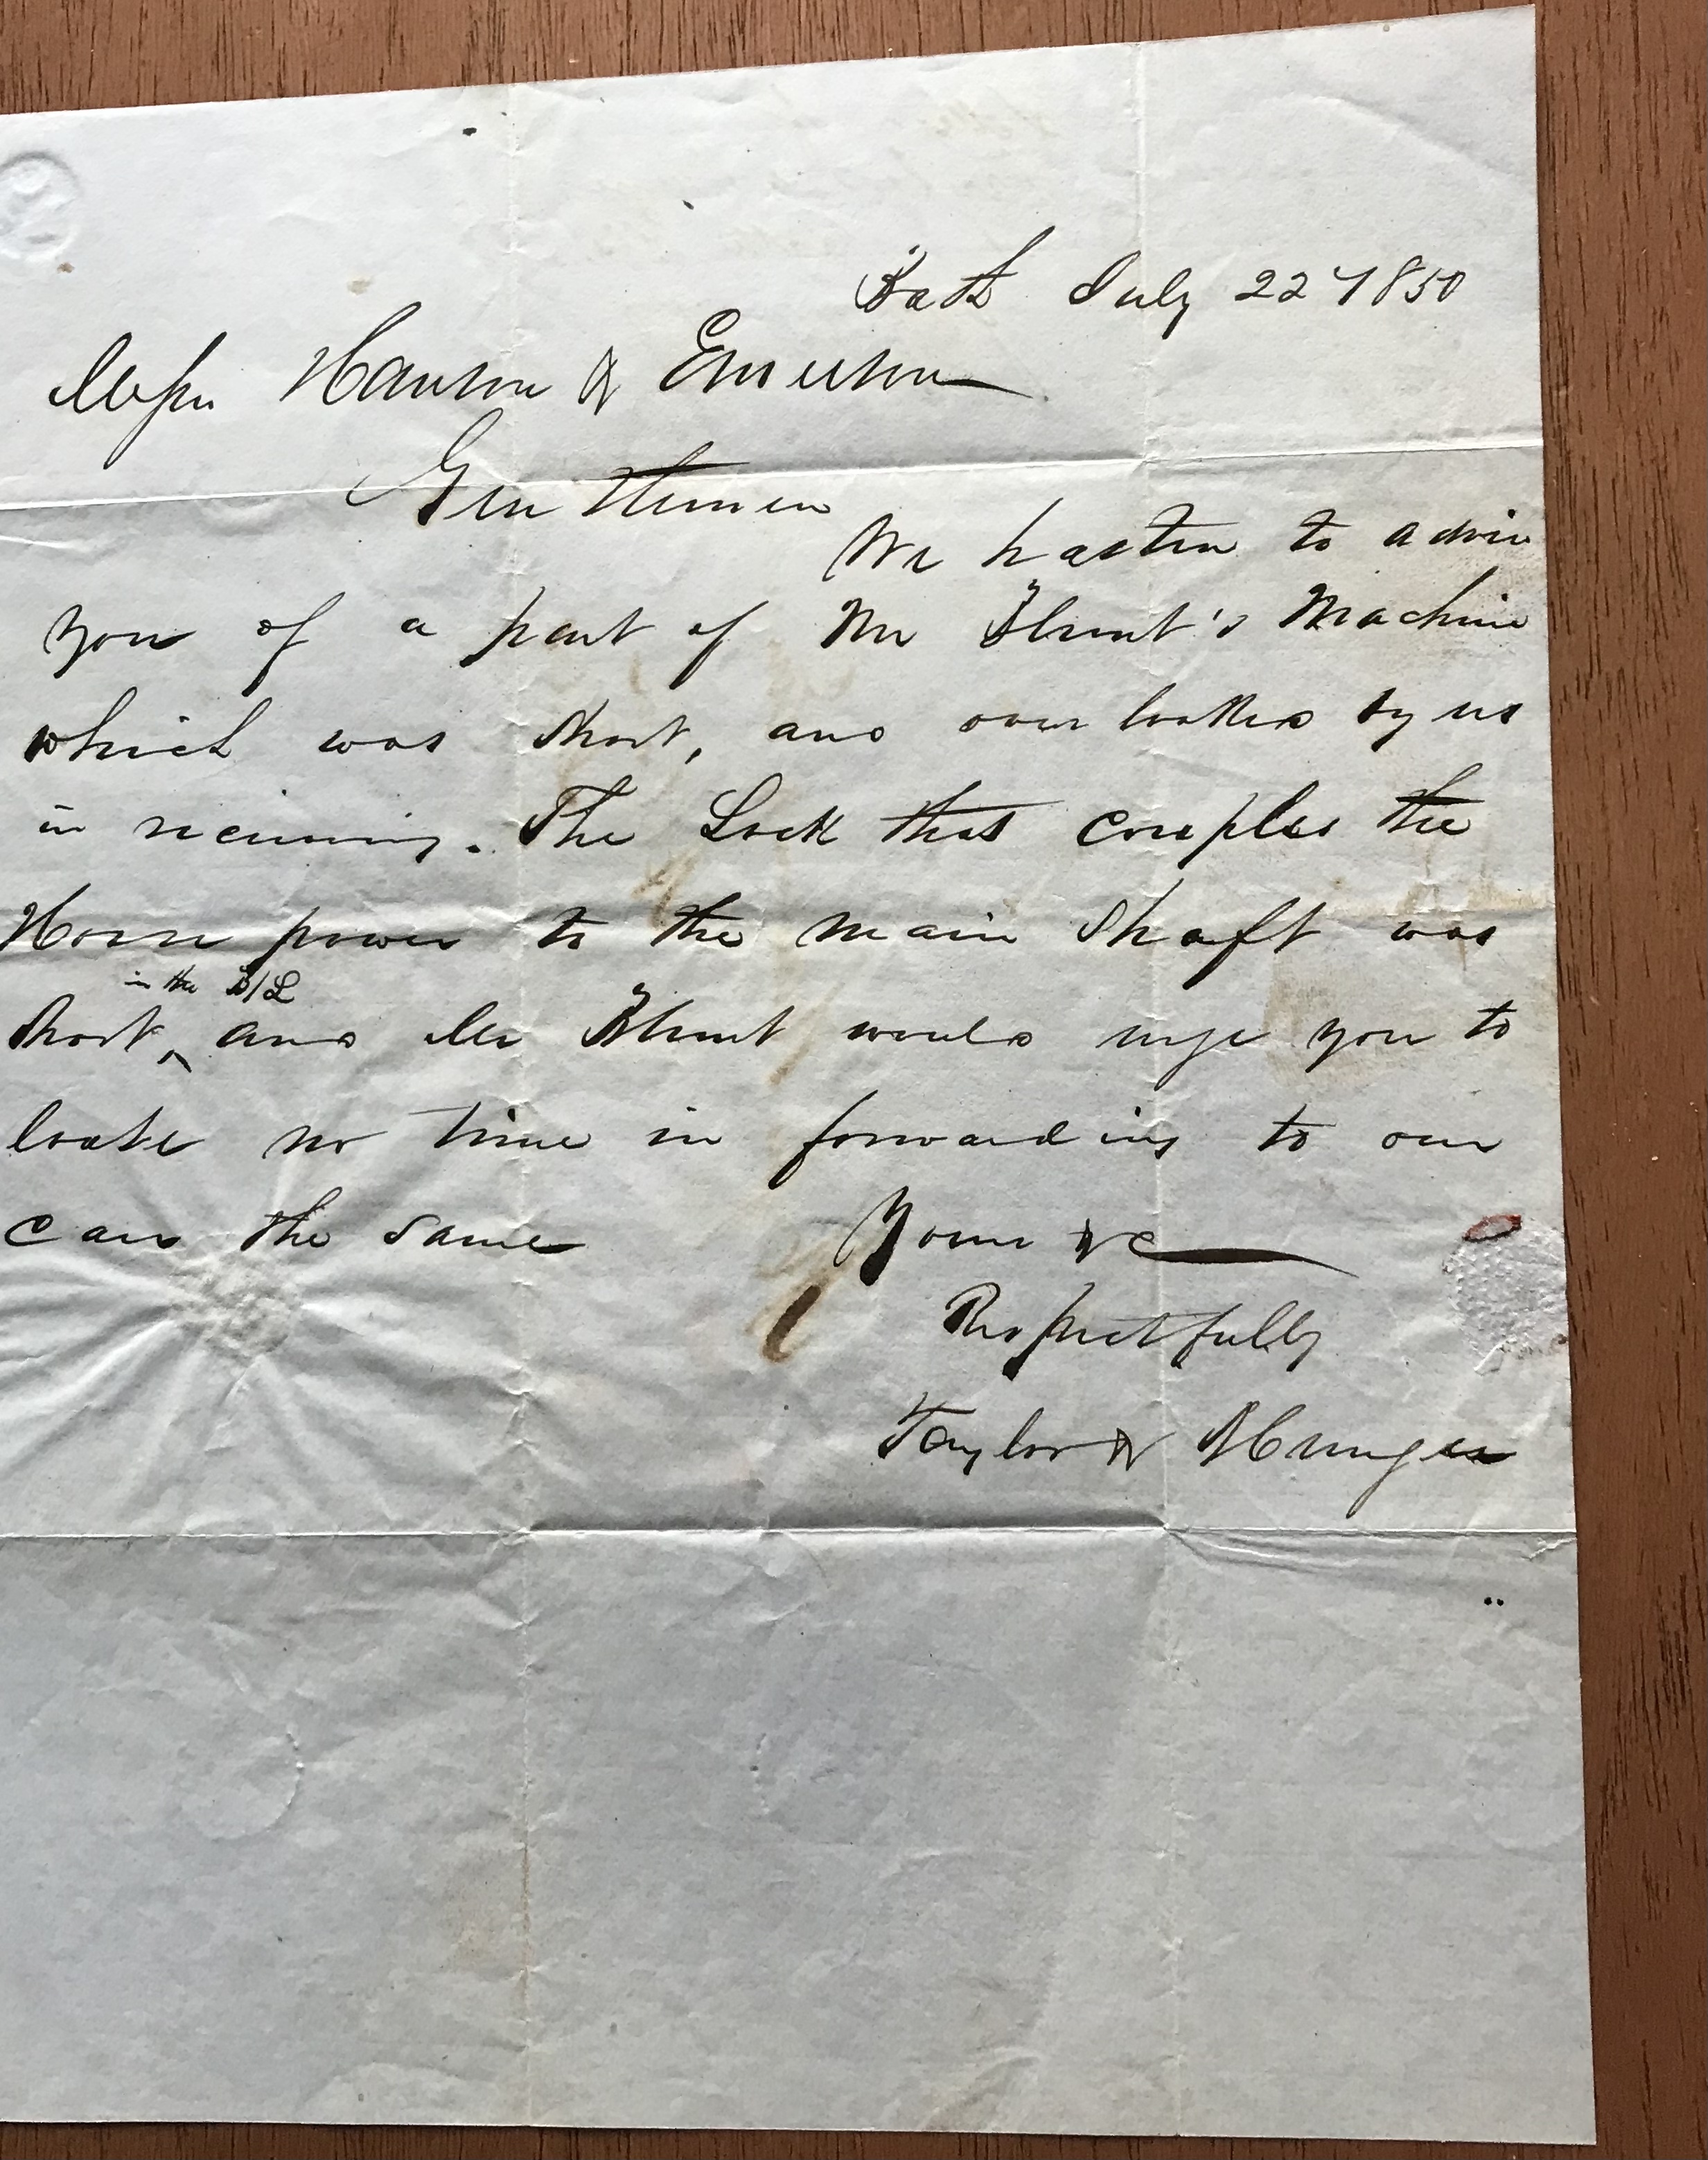 Bath July 22 1850
Messrs Hanson & Emerson
Gentlemen
We hasten to advise
you of a part of Mr Blunt's Machine
which was short, and over looked by us
in receiving. The Lock that couples the
Horse power to the main Shaft was
in the B/L
short, and Mr Blunt would urge you to
loose no time in forwarding to our
care the same
Yours &c
Respectfully
Taylor & Munger